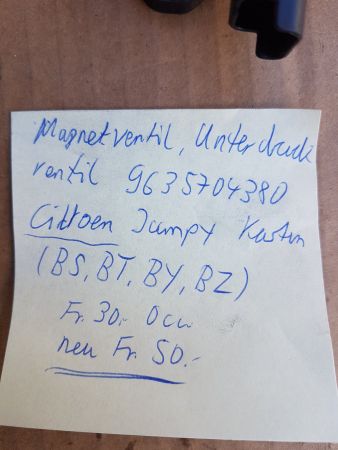 Magnetventil, Unterdruck
ventil 9635704380
Citroen Jumpy Kasten
(BS, BT, BY, BZ)
Fr. 30.- Occ
neu Fr. 50.-